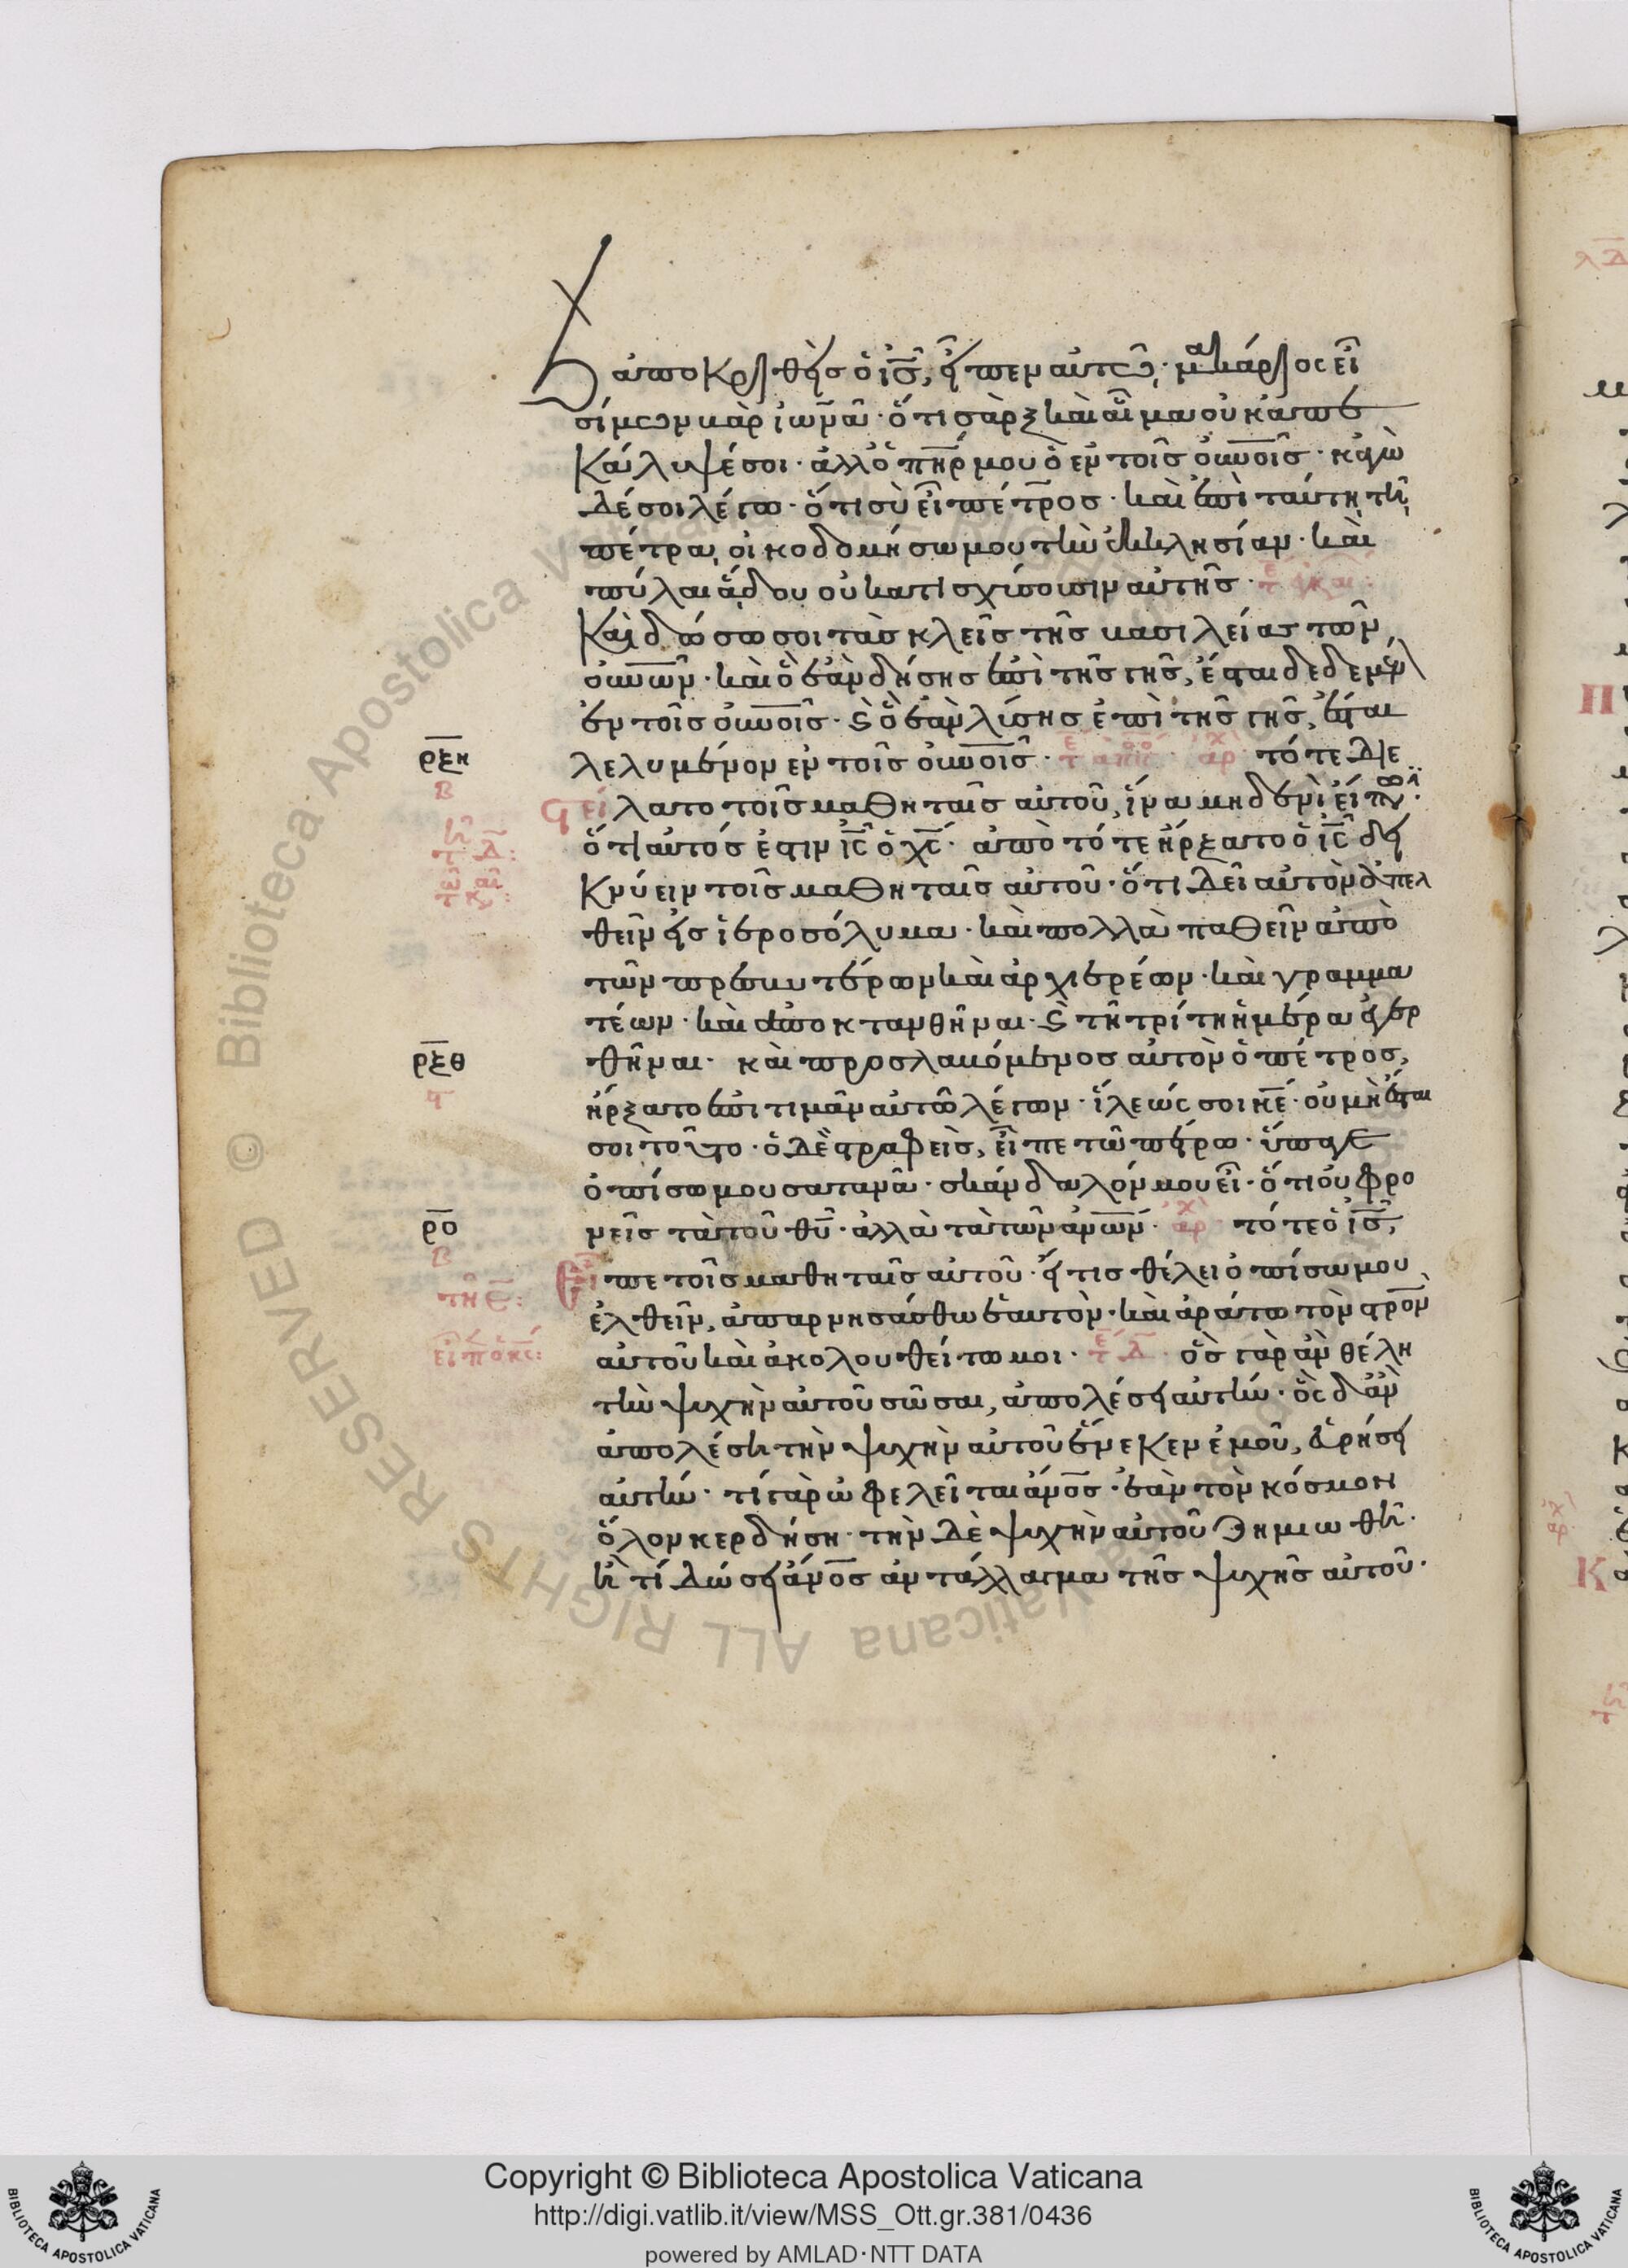 ἀποκριθεὶς ὁ ις̅, εἶπεν αὐτῶ· μακάριος εἶ
σίμων βὰρ ἰωνᾶ· ὅτι σὰρξ καὶ αἷμα οὐκ ἀπε
κάλυψέ σοι· ἀλλ ὁ πηρ̅ μου ὁ ἐν τοῖς οὐνοις̅· κἀγὼ
δέ σοι λέγω· ὅτι σὺ εἶ πέτρος· καὶ ἐπὶ ταύτη τῆ
πέτρα οἰκοδομήσω μου τὴν ἐκκλησίαν· καὶ
πύλαι ἅδου οὐ κατισχύσουσιν αὐτῆς·
Καὶ δώσω σοι τὰς κλεῖς τῆς βασιλείας τῶν
οὐνων̅· καὶ ὃ ἐὰν δήσης ἐπὶ τῆς γῆς, ἔσται δεδεμέν
ἐν τοῖς οὐνοις̅· ϗ ὃ ἐὰν λύσης ἐπὶ τῆς γῆς, ἔσται
ρξη λελυμένον ἐν τοῖς οὐνοις̅· τότε διε
στείλατο τοῖς μαθηταῖς αὐτοῦ, ἵνα μηδενὶ εἴπω·
ὅτι αὐτός ἐστιν ις̅ ὁ χς̅· ἀπὸ τότε ἤρξατο ὁ ις̅ δει
κνύειν τοῖς μαθηταῖς αὐτοῦ· ὅτι δεῖ αὐτὸν ἀπελ
θεῖν εἰς ἱεροσόλυμα· καὶ πολλὰ παθεῖν ἀπὸ
τῶν πρεσβυτέρων καὶ ἀρχιερέων· καὶ γραμμα
τέων· καὶ ἀποκτανθῆναι· ϗ τῆ τρίτη ἡμέρα ἐγερ
ρξθ θῆναι· καὶ προσλαβόμενος αὐτὸν ὁ πέτρος,
ἤρξατο ἐπιτιμᾶν αὐτῶ λέγων· ἵλεώς σοι κε̅· οὐ μὴ ἔσται
σοι τοῦτο· ὁ δὲ στραφεὶς, εἶπε τῶ πέτρω· ὕπαγε
ὀπίσω μου σατανᾶ· σκάνδαλόν μου εἶ· ὅτι οὐ φρο
ρο νεῖς τὰ τοῦ θυ̅· ἀλλὰ τὰ τῶν ἀνων̅· τότε ὁ ις̅,
Εἶπε τοῖς μαθηταῖς αὐτοῦ· εἴ τις θέλει ὀπίσω μου
ἐλθεῖν, ἀπαρνησάσθω ἑαυτὸν· καὶ ἀράτω τὸν στρον̅
αὐτοῦ καὶ ἀκολουθείτω μοι· ὃς γὰρ ἂν θέλη
τὴν ψυχὴν αὐτοῦ σῶσαι, ἀπολέσει αὐτήν· ὃς δ ἂν
ἀπολέση τὴν ψυχὴν αὐτοῦ ἕνεκεν ἐμοῦ, εὑρήσει
αὐτήν· τί γὰρ ὠφελεῖται ἄνος̅· ἐὰν τὸν κόσμον
ὅλον κερδήση· τὴν δὲ ψυχὴν αὐτοῦ ζημιωθῆ·
ἢ τί δώσει ἄνος̅ ἀντάλλαγμα τῆς ψυχῆς αὐτοῦ·
© Biblioteca Apostolica Vaticana ALL RIGHTS RESERVED
Copyright © Biblioteca Apostolica Vaticana
http://digi.vatlib.it/view/MSS_Ott.gr.381/0436
powered by AMLAD·NTT DATA
BIBLIOTECA APOSTOLICA VATICANA
BIBLIOTECA APOSTOLICA VATICANA